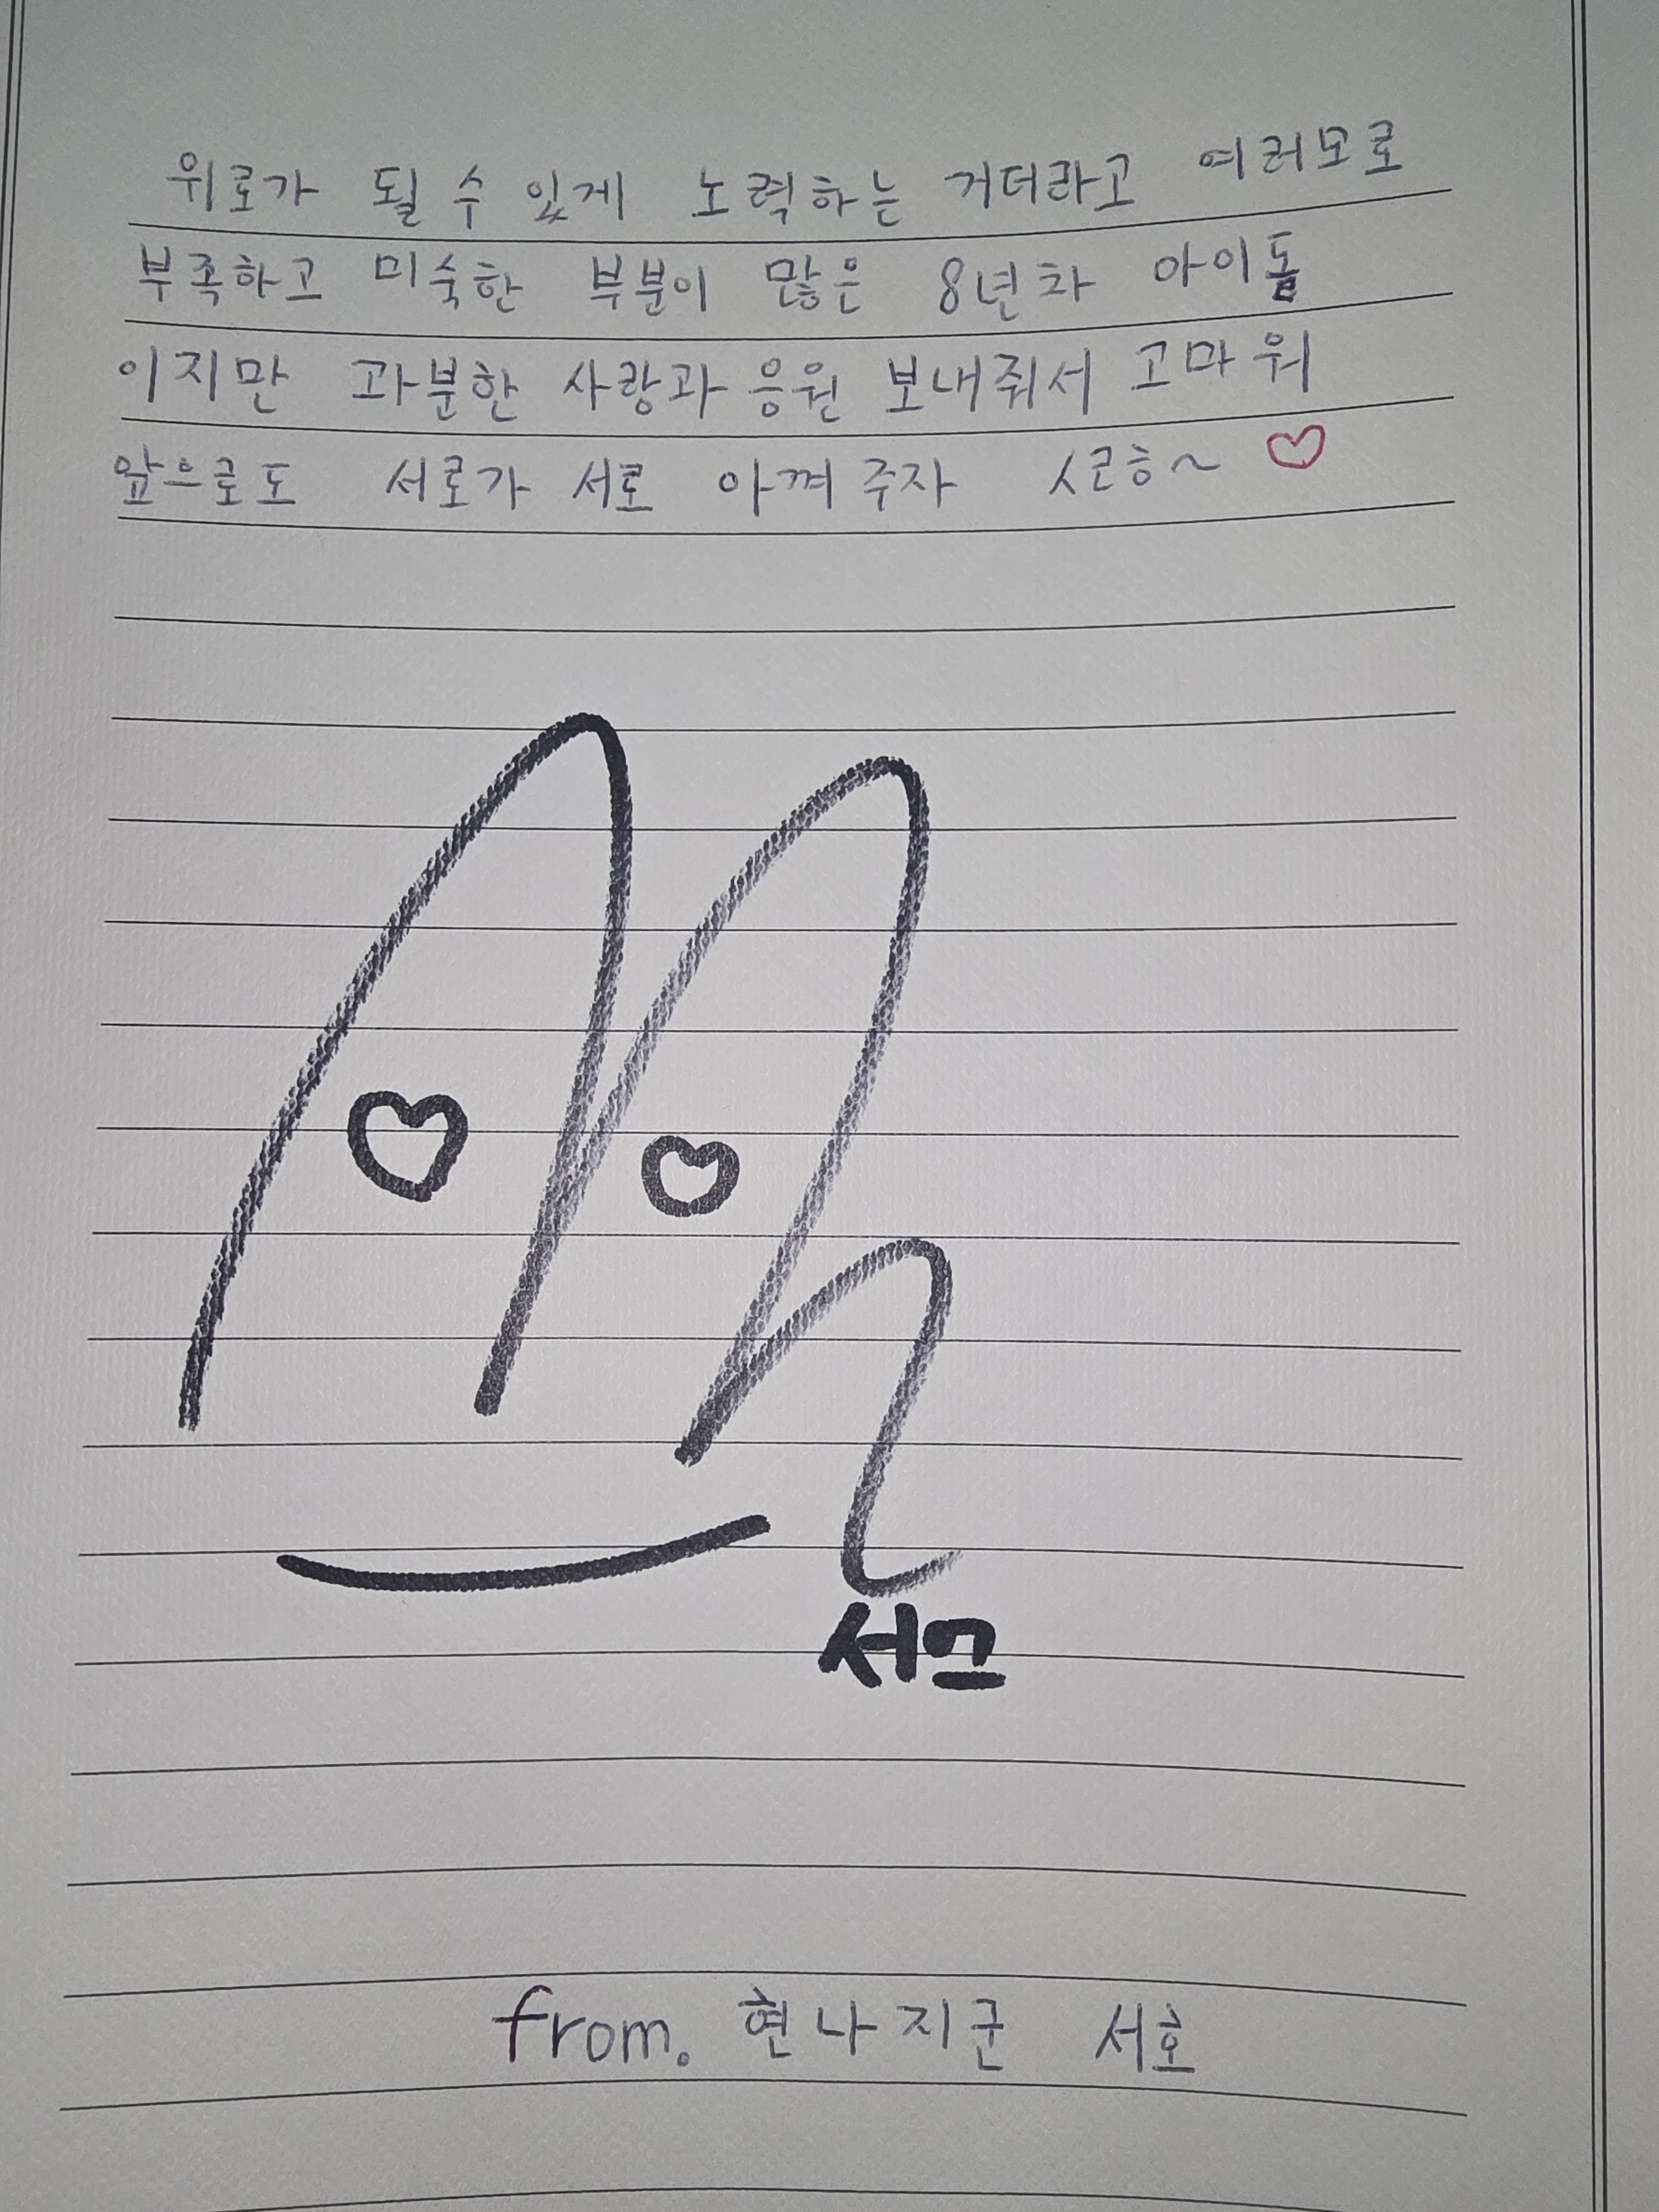 위로가 될 수 있게 노력하는 거더라고 여러모로
부족하고 미숙한 부분이 많은 8년차 아이돌
이지만 과분한 사랑과 응원 보내줘서 고마워
앞으로도 서로가 서로 아껴주자
from. 현나지군 서호